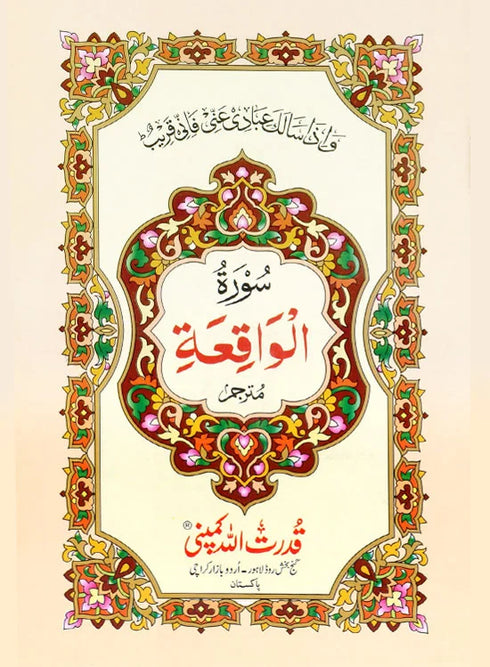 وَاِذَا سَاَلَكَ عِبَادِیْ عَنِّیْ فَاِنِّیْ قَرِیْبٌؕ
سُوْرَةُ
الْوَاقِعَةِ
مُترجم
قدرت اللہ کمپنی
گنج بخش روڈ لاہور - اُردو بازار کراچی
پاکستان